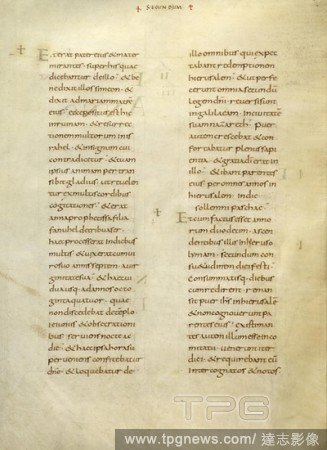 SECUNDUM
Et erat pater eius & mater
mirantes super his quae
dicebantur de illo & be
nedixit illis simeon &
dixit ad mariam matrem
eius ecce positus est hic
in ruinam & resurrec
tionem multorum in is
rahel & in signum cui
contradicetur & tuam
ipsius animam per tran
sibit gladius ut reuelen
tur ex multis cordibus
cogitationes & erat
anna prophetissa filia
fanuhel de tribu aser
haec processerat in diebus
multis & uixerat cum ui
ro suo annis septem a uir
ginitate sua & haec ui
dua usq. ad annos octo
ginta quattuor quae
non discedebat de templo
ieiuniis & obsecrationi
bus seruiens nocte ac
die & haec ipsa hora su
per ueniens confitebatur
dño & loquebatur de
illo omnibus qui expec
tabant redemptionem
hierusalem & ut perfe
cerunt omnia secundū
lege dñi reuersi sunt
in galilaeam in ciuitatē
suam nazareth Puer
autem crescebat & con
fortabatur plenus sapi
entia & gratia dī erat in
illo & ibant parentes
eius per omnes annos in
hierusalem in die
sollemni paschae
Et cum factus esset anno
rum duodecim ascen
dentibus illis in hieruso
lymam secundum con
suetudinem diei festi
consummatisq. diebus
cum redirent reman
sit puer ihs in hierusalē
& non cognouerunt pa
rentes eius existiman
tes autem illum esse in co
mitatu uenerunt iter
diei & requirebant eū
inter cognatos & notos
TPG
www.tpgnews.com / 達志影像